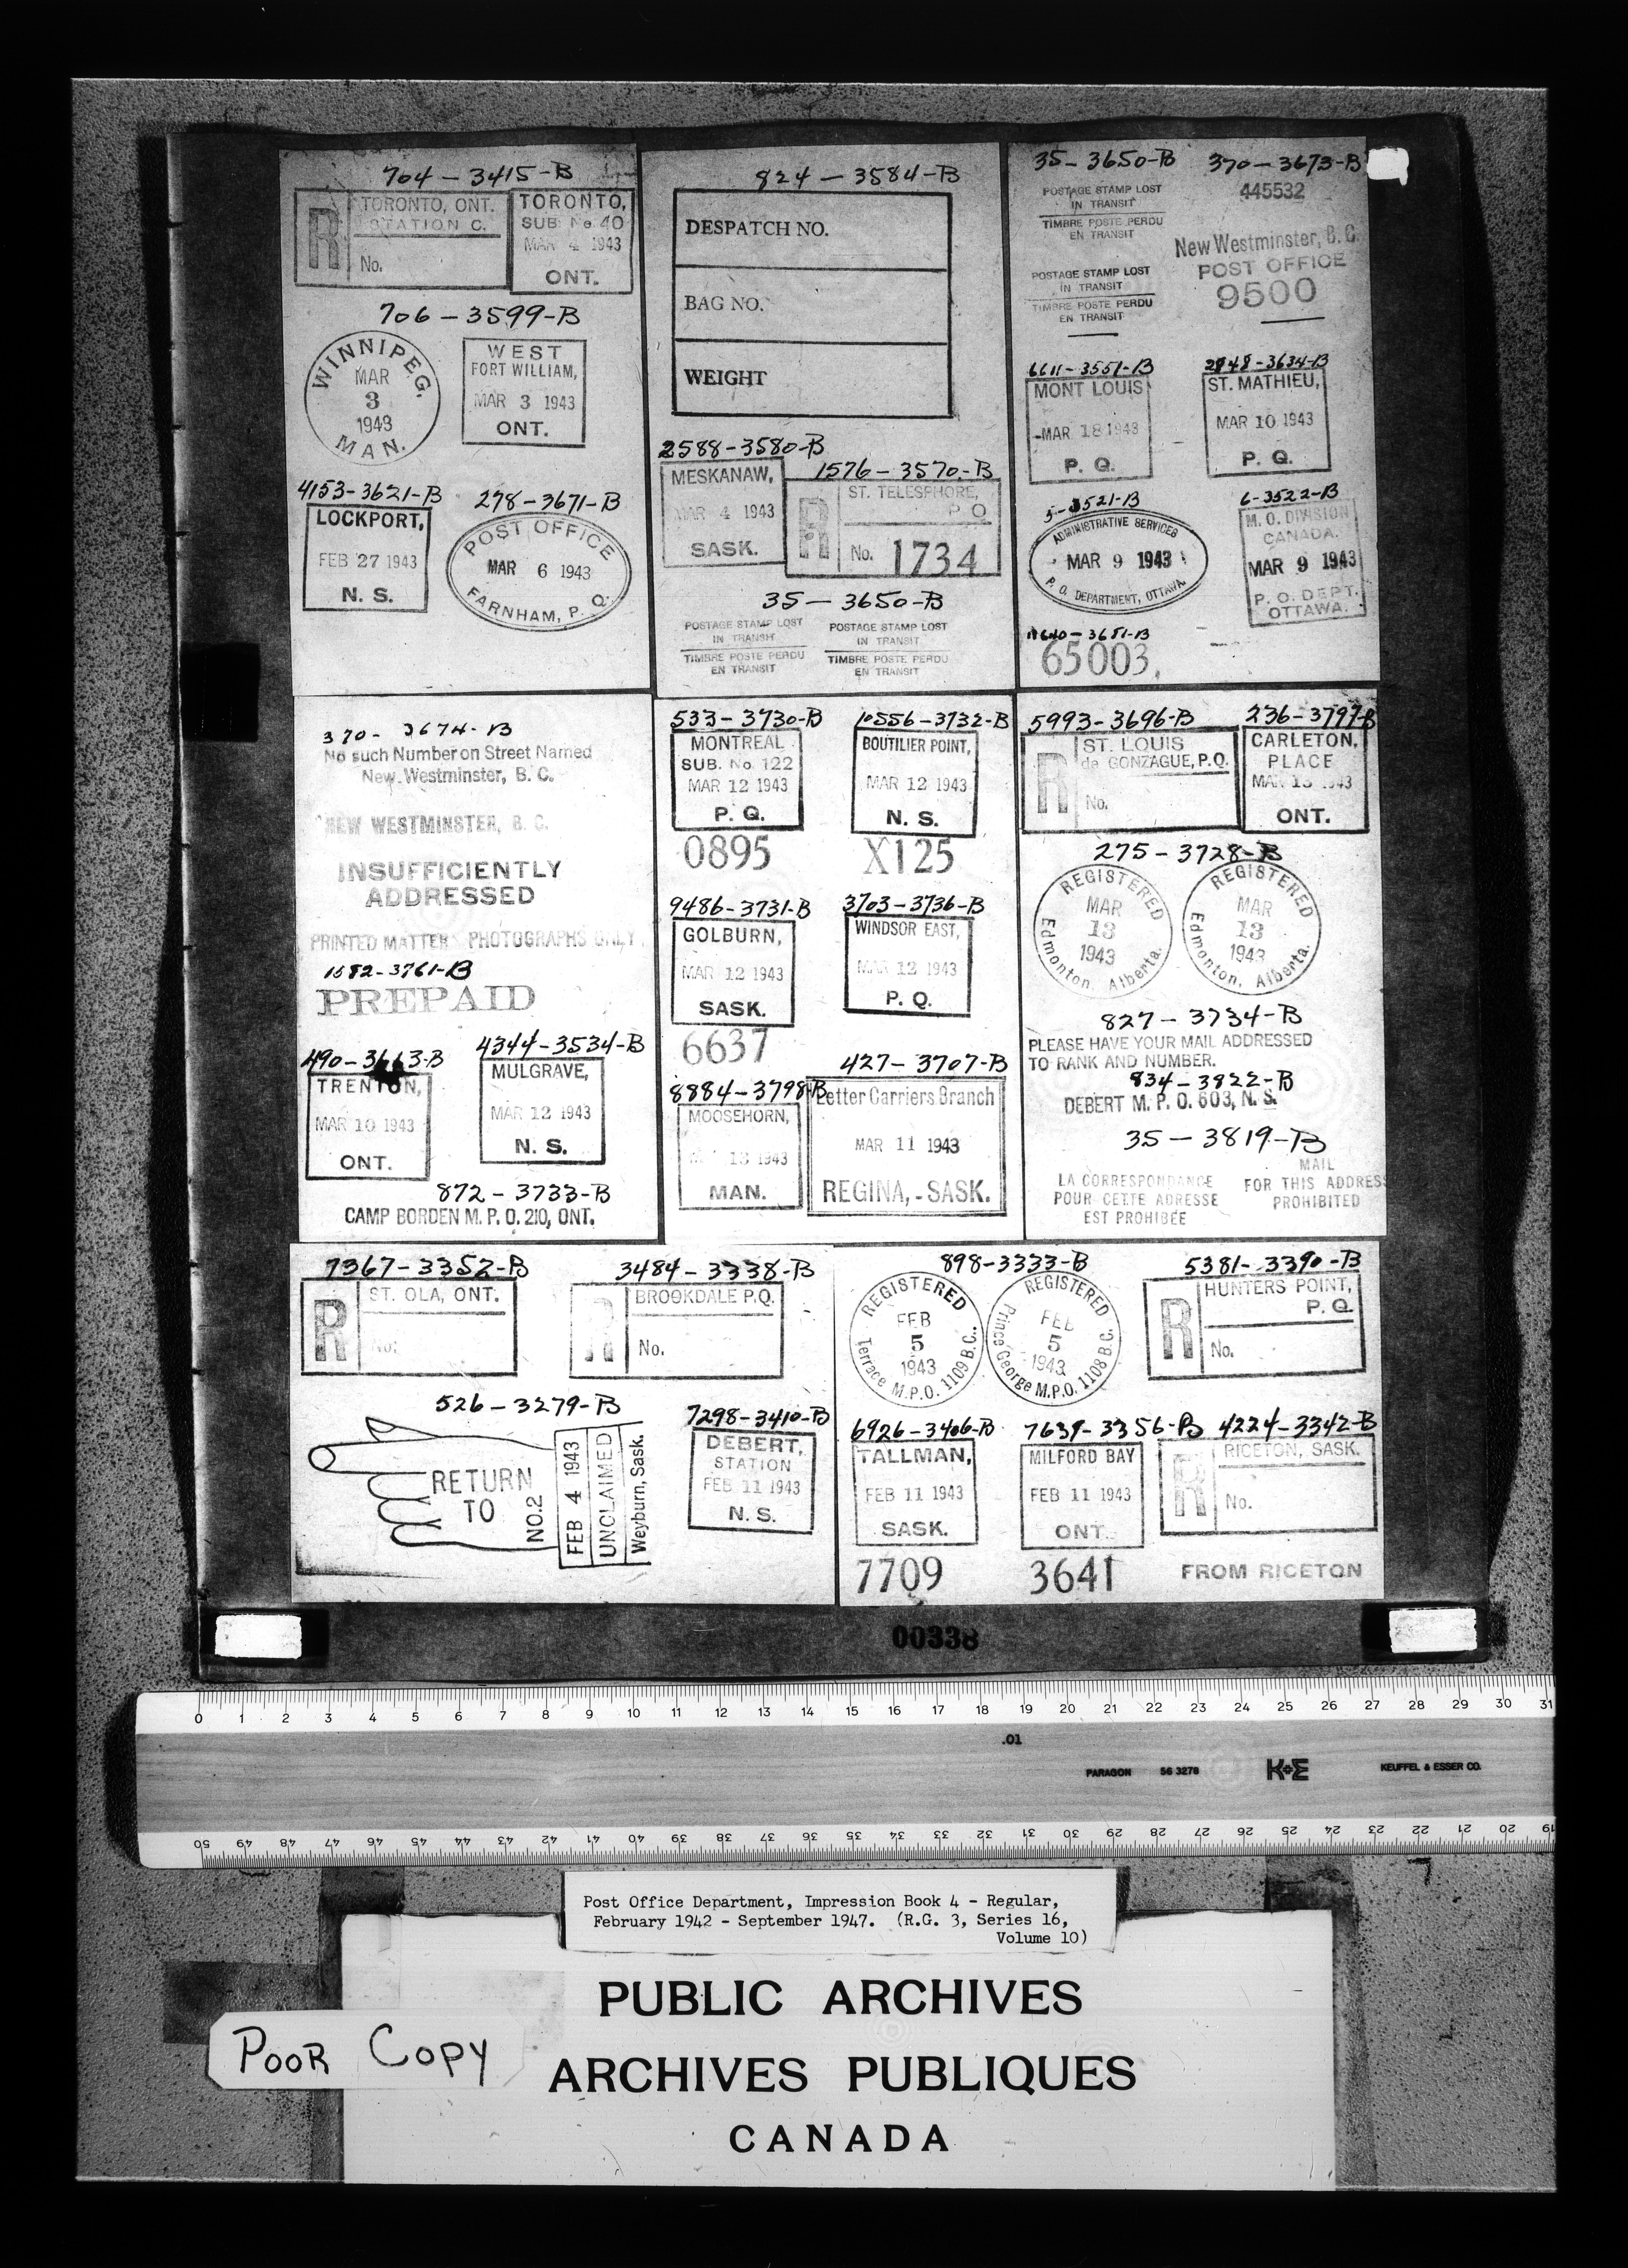 704-3415-B
TORONTO, ONT.
STATION C.
R
No.
TORONTO,
SUB. No 40
MAR 4 1943
ONT.
706-3599-B
WINNIPEG.
MAR
3
1943
MAN.
WEST
FORT WILLIAM,
MAR 3 1943
ONT.
4153-3621-B
LOCKPORT,
FEB 27 1943
N. S.
278-3671-B
POST OFFICE
MAR 6 1943
FARNHAM, P. Q.
824-3584-B
DESPATCH NO.
BAG NO.
WEIGHT
2588-3580-B
MESKANAW,
MAR 4 1943
SASK.
1576-3570-B
ST. TELESPHORE,
P Q
R
No. 1734
35-3650-B
POSTAGE STAMP LOST
IN TRANSIT
TIMBRE POSTE PERDU
EN TRANSIT
POSTAGE STAMP LOST
IN TRANSIT
TIMBRE POSTE PERDU
EN TRANSIT
35-3650-B
POSTAGE STAMP LOST
IN TRANSIT
TIMBRE POSTE PERDU
EN TRANSIT
POSTAGE STAMP LOST
IN TRANSIT
TIMBRE POSTE PERDU
EN TRANSIT
370-3673-B
445532
New Westminster, B. C.
POST OFFICE
9500
6611-3551-B
MONT LOUIS
MAR 18 1943
P. Q.
3634-B
ST. MATHIEU,
MAR 10 1943
P. Q.
5-3521-B
ADMINISTRATIVE SERVICES
MAR 9 1943
P. O. DEPARTMENT, OTTAWA
6-3522-B
M. O. DIVISION
CANADA.
MAR 9 1943
P. O. DEPT.
OTTAWA.
3651-B
65003
370-3674-B
No such Number on Street Named
New Westminster, B. C.
NEW WESTMINSTER, B. C.
INSUFFICIENTLY
ADDRESSED
PRINTED MATTER PHOTOGRAPHS ONLY
3761-B
PREPAID
490-3663-B
TRENTON,
MAR 10 1943
ONT.
4344-3534-B
MULGRAVE,
MAR 12 1943
N. S.
872-3733-B
CAMP BORDEN M. P. O. 210, ONT.
533-3730-B
MONTREAL
SUB. No. 122
MAR 12 1943
P. Q.
0895
10556-3732-B
BOUTILIER POINT,
MAR 12 1943
N. S.
X125
9486-3731-B
GOLBURN,
MAR 12 1943
SASK.
6637
3703-3736-B
WINDSOR EAST,
MAR 12 1943
P. Q.
8884-3798-B
MOOSEHORN,
13 1943
MAN.
427-3707-B
Letter Carriers Branch
MAR 11 1943
REGINA, - SASK.
5993-3696-B
ST. LOUIS
de GONZAGUE, P.Q.
R
No.
236-3797-B
CARLETON,
PLACE
MAR 13 1943
ONT.
275-3728-B
REGISTERED
MAR
13
1943
Edmonton, Alberta.
REGISTERED
MAR
13
1943
Edmonton, Alberta.
827-3734-B
PLEASE HAVE YOUR MAIL ADDRESSED
TO RANK AND NUMBER.
834-3822-B
DEBERT M. P. O. 603, N. S.
35-3819-B
LA CORRESPONDANCE
POUR CETTE ADRESSE
EST PROHIBÉE
MAIL
FOR THIS ADDRESS
PROHIBITED
7367-3352-B
ST. OLA, ONT.
R
No.
3484-3338-B
BROOKDALE P.Q.
R
No.
526-3279-B
RETURN
TO
NO.2
FEB 4 1943
UNCLAIMED
Weyburn, Sask.
7298-3410-B
DEBERT,
STATION
FEB 11 1943
N. S.
898-3333-B
REGISTERED
FEB
5
1943
Terrace M.P.O. 1109 B.C.
REGISTERED
FEB
5
1943
Prince George M.P.O. 1108 B.C.
5381-3390-B
HUNTERS POINT,
P. Q.
R
No.
6926-3406-B
TALLMAN,
FEB 11 1943
SASK.
7709
7639-3356-B
MILFORD BAY
FEB 11 1943
ONT.
3641
4224-3342-B
RICETON, SASK.
R
No.
FROM RICETON
00338
0 1 2 3 4 5 6 7 8 9 10 11 12 13 14 15 16 17 18 19 20 21 22 23 24 25 26 27 28 29 30 31
.01
PARAGON 56 3278 K+E KEUFFEL & ESSER CO.
50 49 48 47 46 45 44 43 42 41 40 39 38 37 36 35 34 33 32 31 30 29 28 27 26 25 24 23 22 21 20 19
Post Office Department, Impression Book 4 - Regular,
February 1942 - September 1947. (R.G. 3, Series 16,
Volume 10)
PUBLIC ARCHIVES
POOR COPY
ARCHIVES PUBLIQUES
CANADA